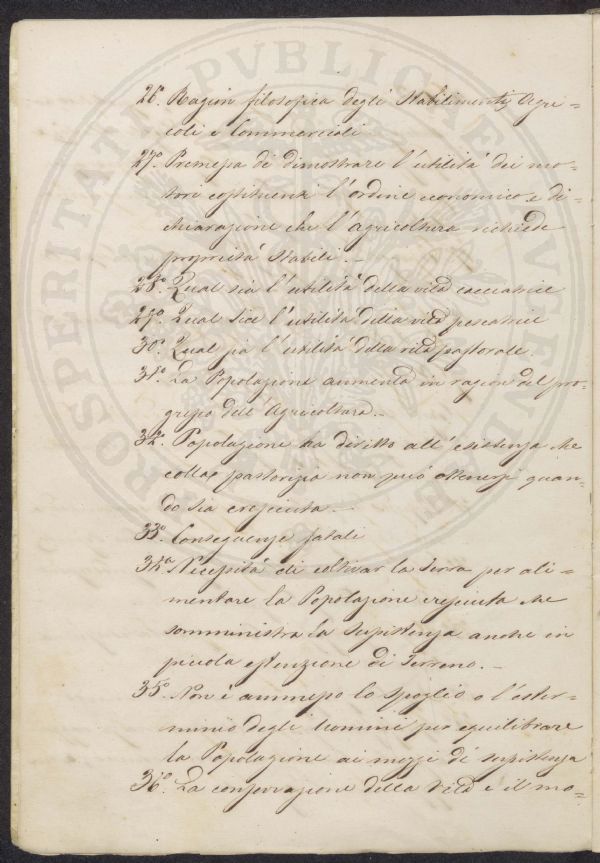 26°. Ragion filosofica degli Stabilimenti Agri=
coli e Commerciali
27°. Premessa di dimostrare l'utilità dei mo=
tori costituenzi l'ordine economico e di=
chiarazione che l'agricoltura richiede
proprietà stabili. —
28°. Qual sia l'utilità della vita cacciatrice
29°. Qual sia l'utilità della vita pescatrice
30°. Qual sia l'utilità della vita pastorale.
31°. La Popolazione aumenta in ragion del pro=
gresso dell'Agricoltura. —
32°. Popolazione ha diritto all'esistenza che
colla pastorizia non può ottenersi quan=
do sia cresciuta. —
33°. Conseguenze fatali
34°. Necessità di coltivar la Terra per ali=
mentare la Popolazione cresciuta che
somministra la sussistenza anche in
piccola estenzione di Terreno. —
35°. Non è ammesso lo spoglio o l'ester=
minio degli uomini per equilibrare
la Popolazione ai mezzi di sussistenza
36°. La conservazione della Vita è il mo=
PROSPERITATI PVBLICAE